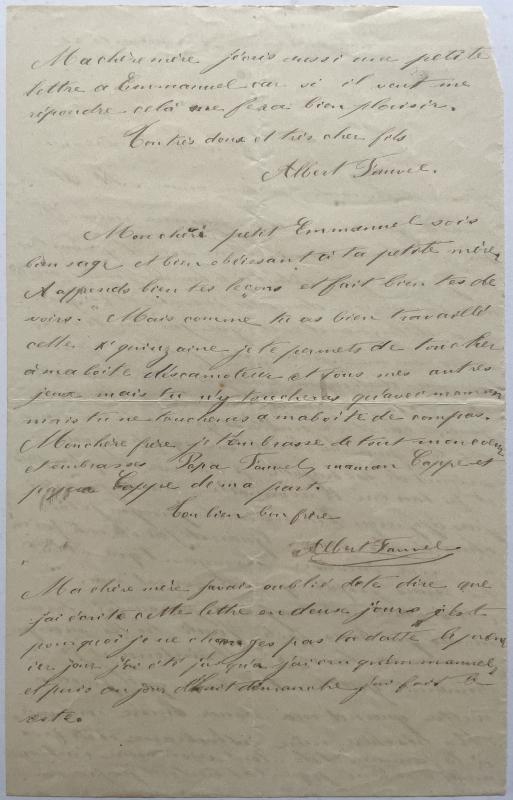 Ma chère mère j'écris aussi une petite
lettre a Emmanuel car si il veut me
répondre celà me fera bien plaisir.
Ton très doux et très cher fils
Albert Fauvel.
Mon chéri petit Emmanuel sois
bien sage et bien obéissant à ta petite mère,
apprends bien tes leçons et fait bien tes de
voirs. Mais comme tu as bien travaillé
cette quinzaine je te permets de toucher
à ma boite d'éscamoteur et tous mes autres
jeux mais tu n'y toucheras qu'avec maman
mais tu ne toucheras a ma boite de compas.
Mon chère frère je t'embrasse de tout mon coeur
et embrasses Papa Fauvel, maman Coppe et
Coppe de ma part.
Ton bien bon frère
Albert Fauvel
Ma chère mère j'avais oublié de te dire que
j'ai écrite cette lettre en deux jours
pourquoi je ne changes pas la datte le prem
ier jour j'ai été qu'a Emmanuel,
et puis au jour dimanche j'ai fait le
reste.